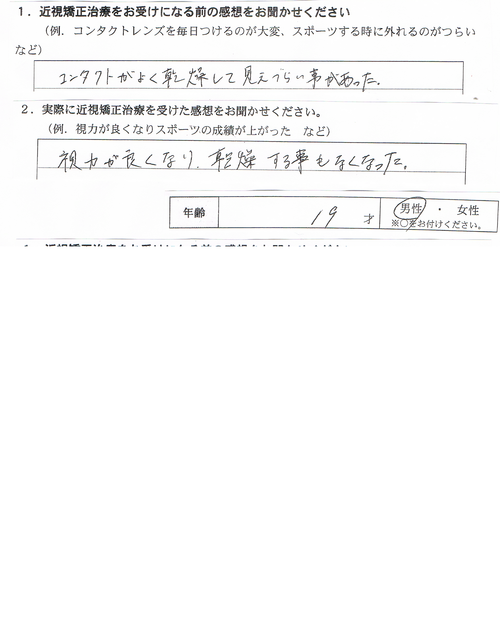 １．近視矯正治療をお受けになる前の感想をお聞かせください
（例．コンタクトレンズを毎日つけるのが大変、スポーツする時に外れるのがつらい
など）
コンタクトがよく乾燥して見えづらい事があった。
２．実際に近視矯正治療を受けた感想をお聞かせください。
（例．視力が良くなりスポーツの成績が上がった　など）
視力が良くなり、乾燥する事もなくなった。
年齢 19 才 男性 ・ 女性
※○をお付けください。